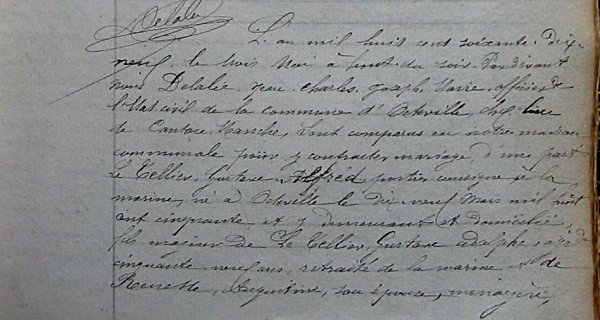 Delalée
L'an mil huit cent soixante-dix-
neuf, le trois Mai à huit du soir, Pardevant
nous Delalée, Jean, Charles, Joseph, Marie, officier de
l'état civil de la commune d'Octeville, chef lieu
de Canton, Manche, sont comparus en notre maison
communale pour y contracter mariage, d'une part
Le Tellier, Gustave Alfred portier consigne de la
marine, né à Octeville le dix-neuf Mars mil huit
cent cinquante et y demeurant et domicilié,
fils majeur de Le Tellier, Gustave Adolphe, agé de
cinquante neuf ans, retraité de la marine et de
Augustine, son épouse, ménagère,